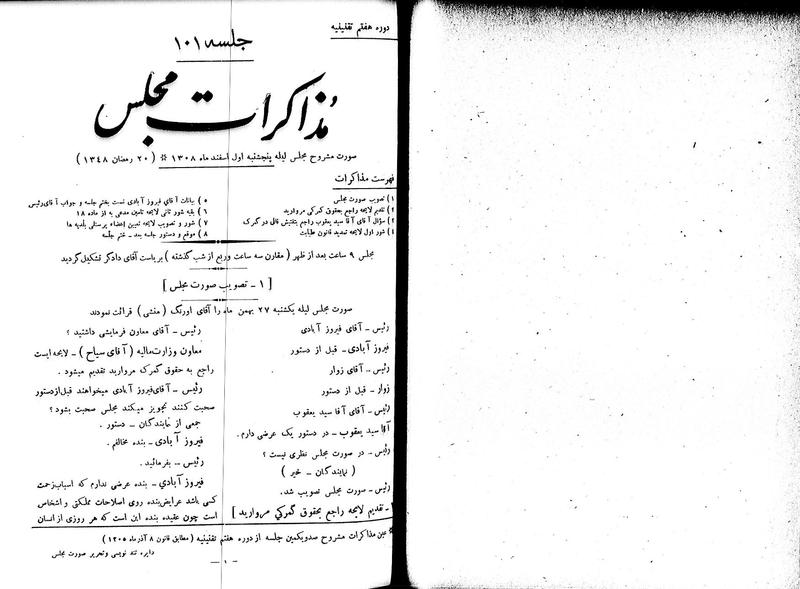 دوره هفتم تقنینیه
جلسه ۱۰۱
مذاکرات مجلس
صورت مشروح مجلس لیله پنجشنبه اول اسفند ماه ۱۳۰۸ * ( ۲۰ رمضان ۱۳۴۸ )
فهرست مذاکرات
۱ ) تصویب صورت مجلس
۲ ) تقدیم لایحه راجع بحقوق گمرکی مروارید
۳ ) سؤال آقای آقا سید یعقوب راجع بتفتیش قالی در گمرک
۴ ) شور اول لایحه تمدید قانون طبابت
۵ ) بیانات آقای فیروز آبادی نسبت بختم جلسه و جواب آقای رئیس
۶ ) بقیه شور ثانی لایحه تامین مدعی به از ماده ۱۸
۷ ) شور و تصویب لایحه تعیین اعضاء پرسنلی بلدیه ها
۸ ) موقع و دستور جلسه بعد ـ ختم جلسه
مجلس ۹ ساعت بعد از ظهر ( مقارن سه ساعت و ربع از شب گذشته ) بریاست آقای دادگر تشکیل گردید
[ ۱ ـ تصویب صورت مجلس ]
صورت مجلس لیله یکشنبه ۲۷ بهمن ماه را آقای اورنگ ( منشی ) قرائت نمودند
رئیس ـ آقای فیروز آبادی
فیروز آبادی ـ قبل از دستور
رئیس ـ آقای زوار
زوار ـ قبل از دستور
رئیس ـ آقای آقا سید یعقوب
آقا سید یعقوب ـ در دستور یک عرضی دارم .
رئیس ـ در صورت مجلس نظری نیست ؟
( نمایندگان ـ خیر )
رئیس ـ صورت مجلس تصویب شد.
ـ تقدیم لایحه راجع بحقوق گمرکی مروارید ]
رئیس ـ آقای معاون فرمایشی داشتید ؟
معاون وزارت مالیه ( آقای سیاح ) ـ لایحه ایست
راجع به حقوق گمرک مروارید تقدیم میشود .
رئیس ـ آقای فیروز آبادی میخواهند قبل از دستور
صحبت کنند تجویز میکند مجلس صحبت بشود ؟
جمعی از نمایندگان ـ دستور .
فیروز آبادی ـ بنده مخالفم .
رئیس ـ بفرمائید .
فیروز آبادی ـ بنده عرضی ندارم که اسباب زحمت
کسی باشد عرایض بنده روی اصلاحات مملکتی و اشخاص
است چون عقیده بنده این است که هر روزی از انسان
* عین مذاکرات مشروح صدویکمین جلسه از دوره هفتم تقنینیه ( مطابق قانون ۸ آذر ماه ۱۳۰۵ )
دایره تند نویسی و تحریر صورت مجلس
ـ ۱ ـ